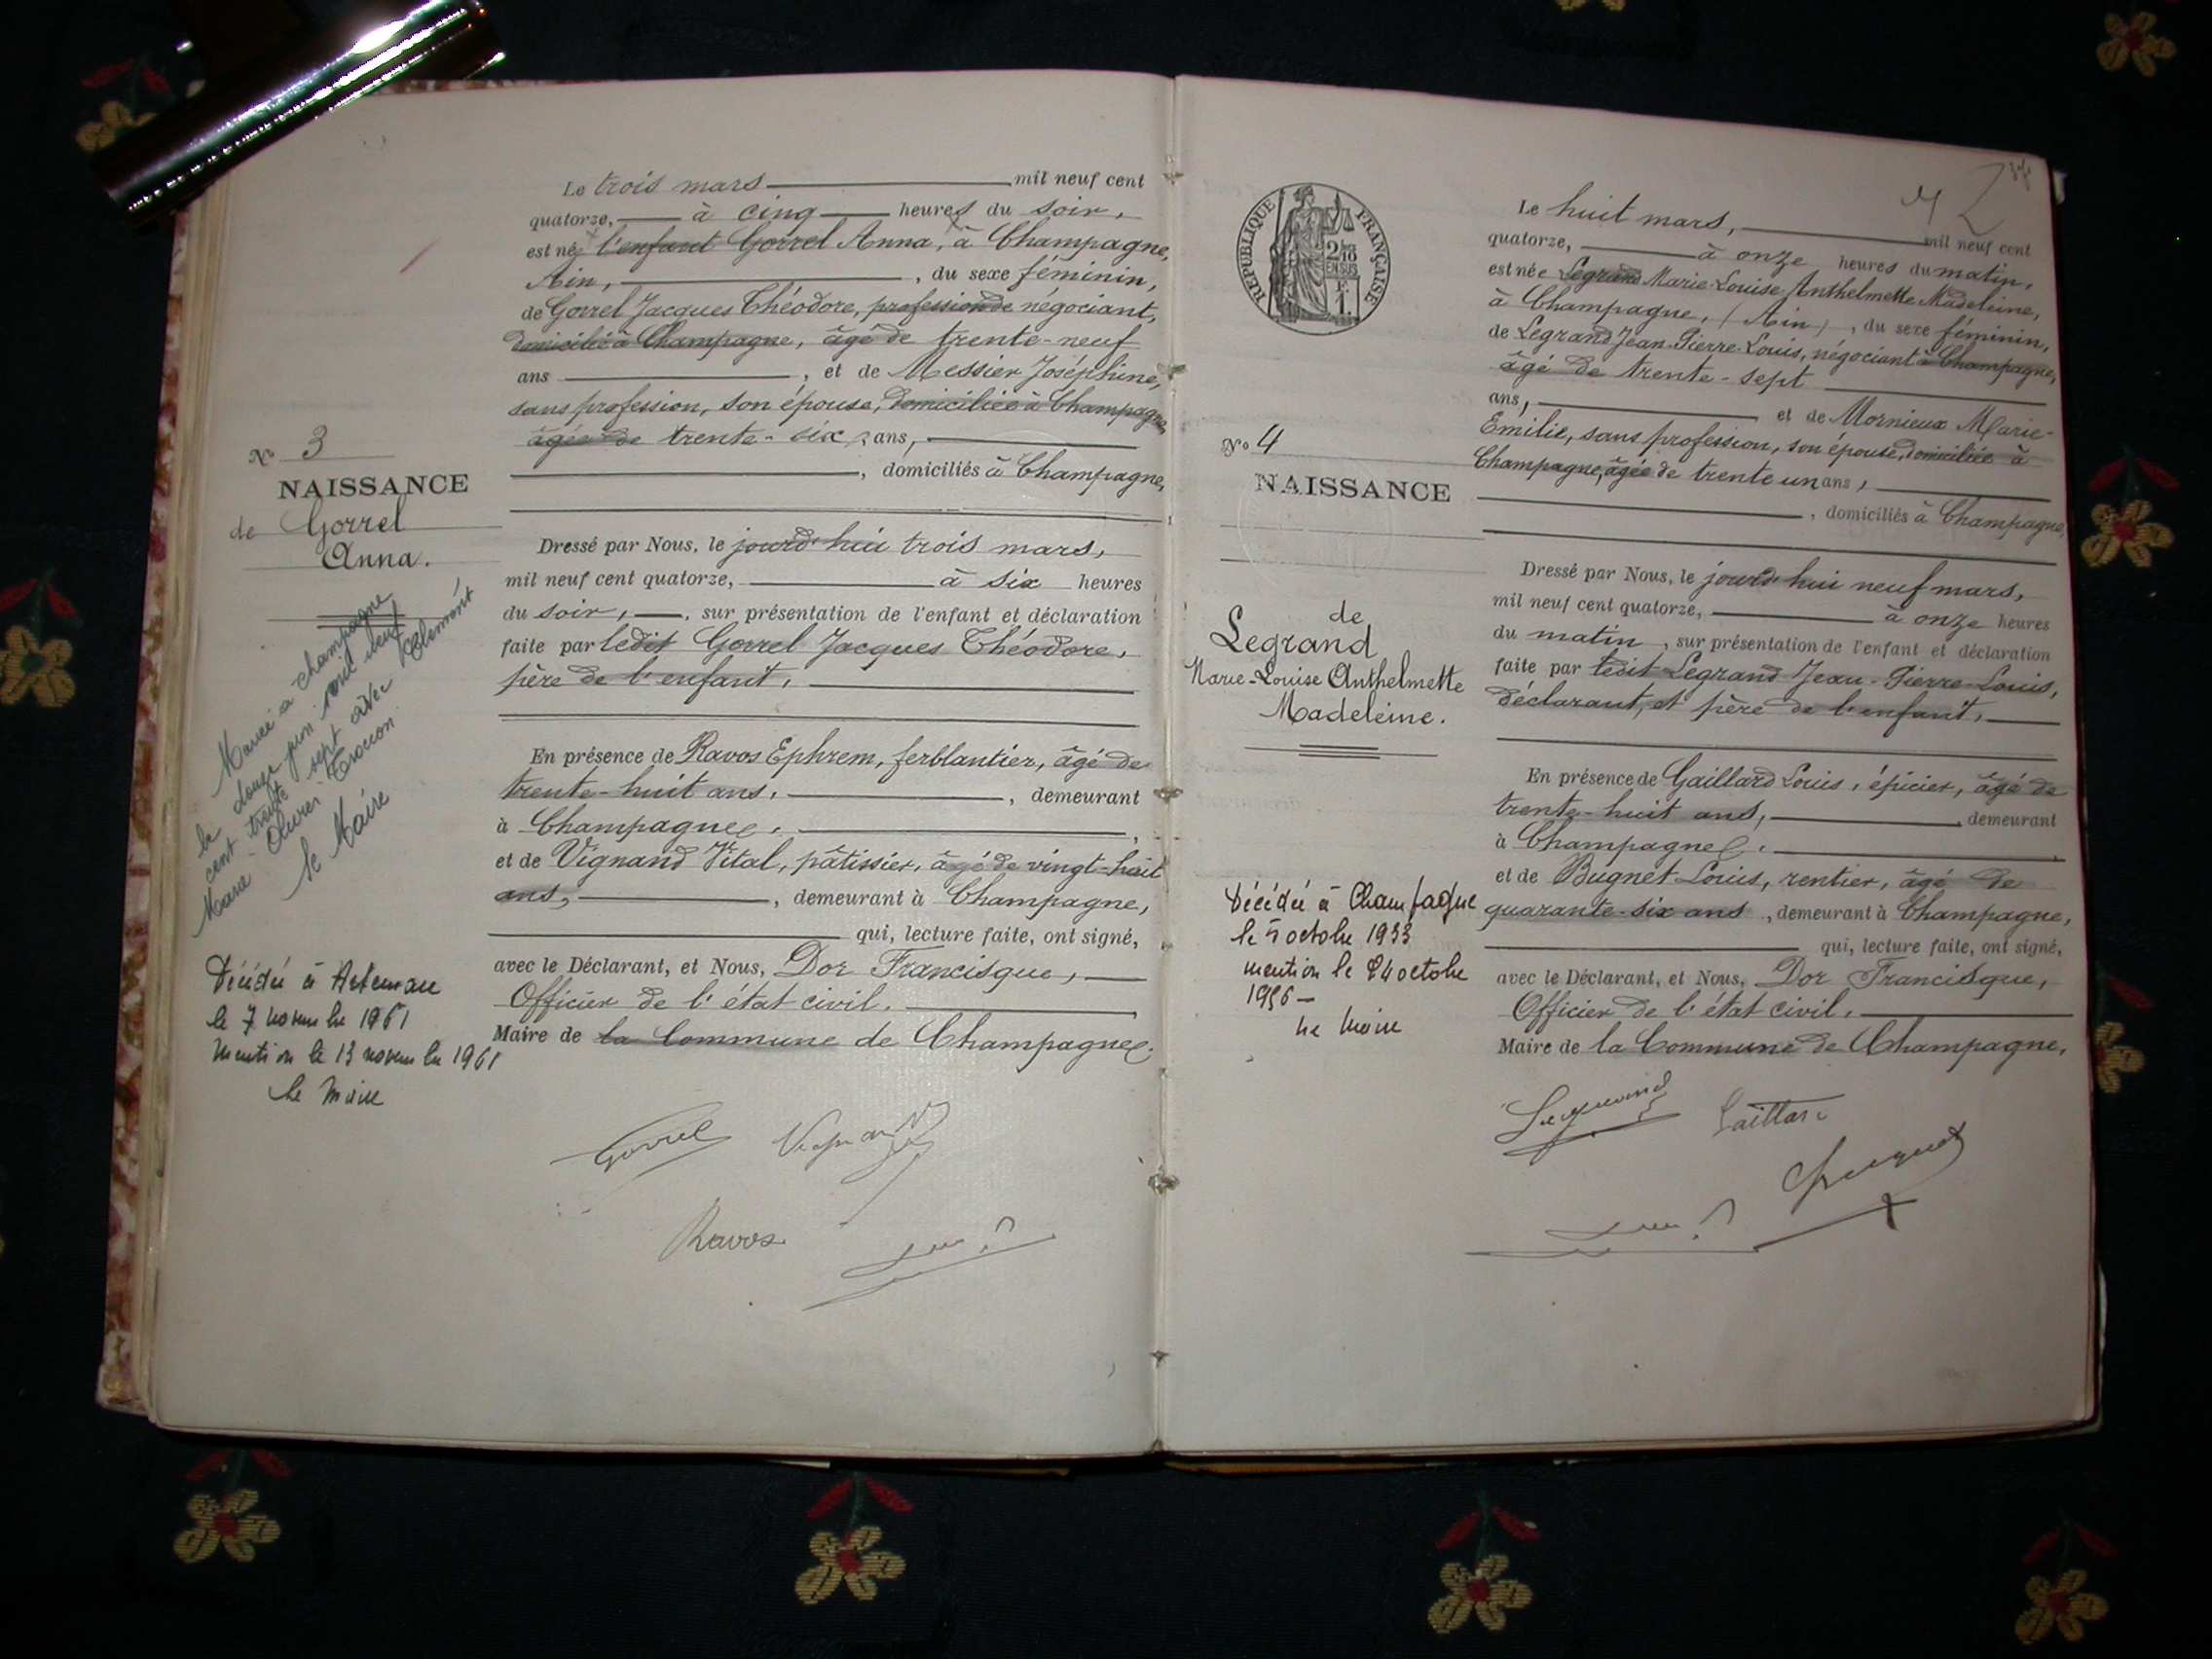 Le trois mars mil neuf cent
quatorze, à cinq heures du soir,
est né l'enfant Gorrel Anna, à Champagne,
Ain, , du sexe féminin,
de Gorrel Jacques Théodore, profession de négociant,
domicilié à Champagne, âgé de trente-neuf
ans , et de Messier Joséphine,
sans profession, son épouse, domiciliée à Champagne
âgée de trente-six, ans,
, domiciliés à Champagne,
No 3
NAISSANCE
de Gorrel
Anna.
Dressé par Nous, le jourd'hui trois mars,
mil neuf cent quatorze, à six heures
du soir, , sur présentation de l'enfant et déclaration
faite par ledit Gorrel Jacques Théodore,
père de l'enfant,
Mariée à Champagne
le douze juin mil neuf
cent trente sept avec Clément
Marie Olivier
Le Maire
En présence de Ravos Ephrem, ferblantier, âgé de
trente-huit ans, , demeurant
à Champagne,
et de Vignand Vital, pâtissier, âgé de vingt-huit
ans, , demeurant à Champagne,
qui, lecture faite, ont signé,
avec le Déclarant, et Nous, Dor Francisque,
Officier de l'état civil.
Maire de la Commune de Champagne.
Décédée à
le 7 novembre 1961
Mention le 13 novembre 1961
Le Maire
Gorrel Vignand
Ravos
RÉPUBLIQUE FRANÇAISE
Le huit mars, mil neuf cent
quatorze, à onze heures du matin,
est née Legrand Marie-Louise-Anthelmette Madeleine,
à Champagne, (Ain), du sexe féminin,
de Legrand Jean-Pierre-Louis, négociant à Champagne,
âgé de trente-sept
ans, et de Mornieux Marie-
Emilie, sans profession, son épouse, domiciliée à
Champagne, âgée de trente un ans,
, domiciliés à Champagne,
No 4
NAISSANCE
de
Legrand
Marie-Louise Anthelmette
Madeleine.
Dressé par Nous, le jourd'hui neuf mars,
mil neuf cent quatorze, à onze heures
du matin, sur présentation de l'enfant et déclaration
faite par ledit Legrand Jean-Pierre-Louis,
déclarant, et père de l'enfant,
En présence de Gaillard Louis, épicier, âgé de
trente-huit ans, demeurant
à Champagne,
et de Bugnet Louis, rentier, âgé de
quarante-six ans, demeurant à Champagne,
qui, lecture faite, ont signé,
avec le Déclarant, et Nous, Dor Francisque,
Officier de l'état civil,
Maire de la Commune de Champagne,
Décédée à Champagne
le 5 octobre
mention le 24 octobre
1956 -
Le Maire
Legrand Gaillard
Bugnet